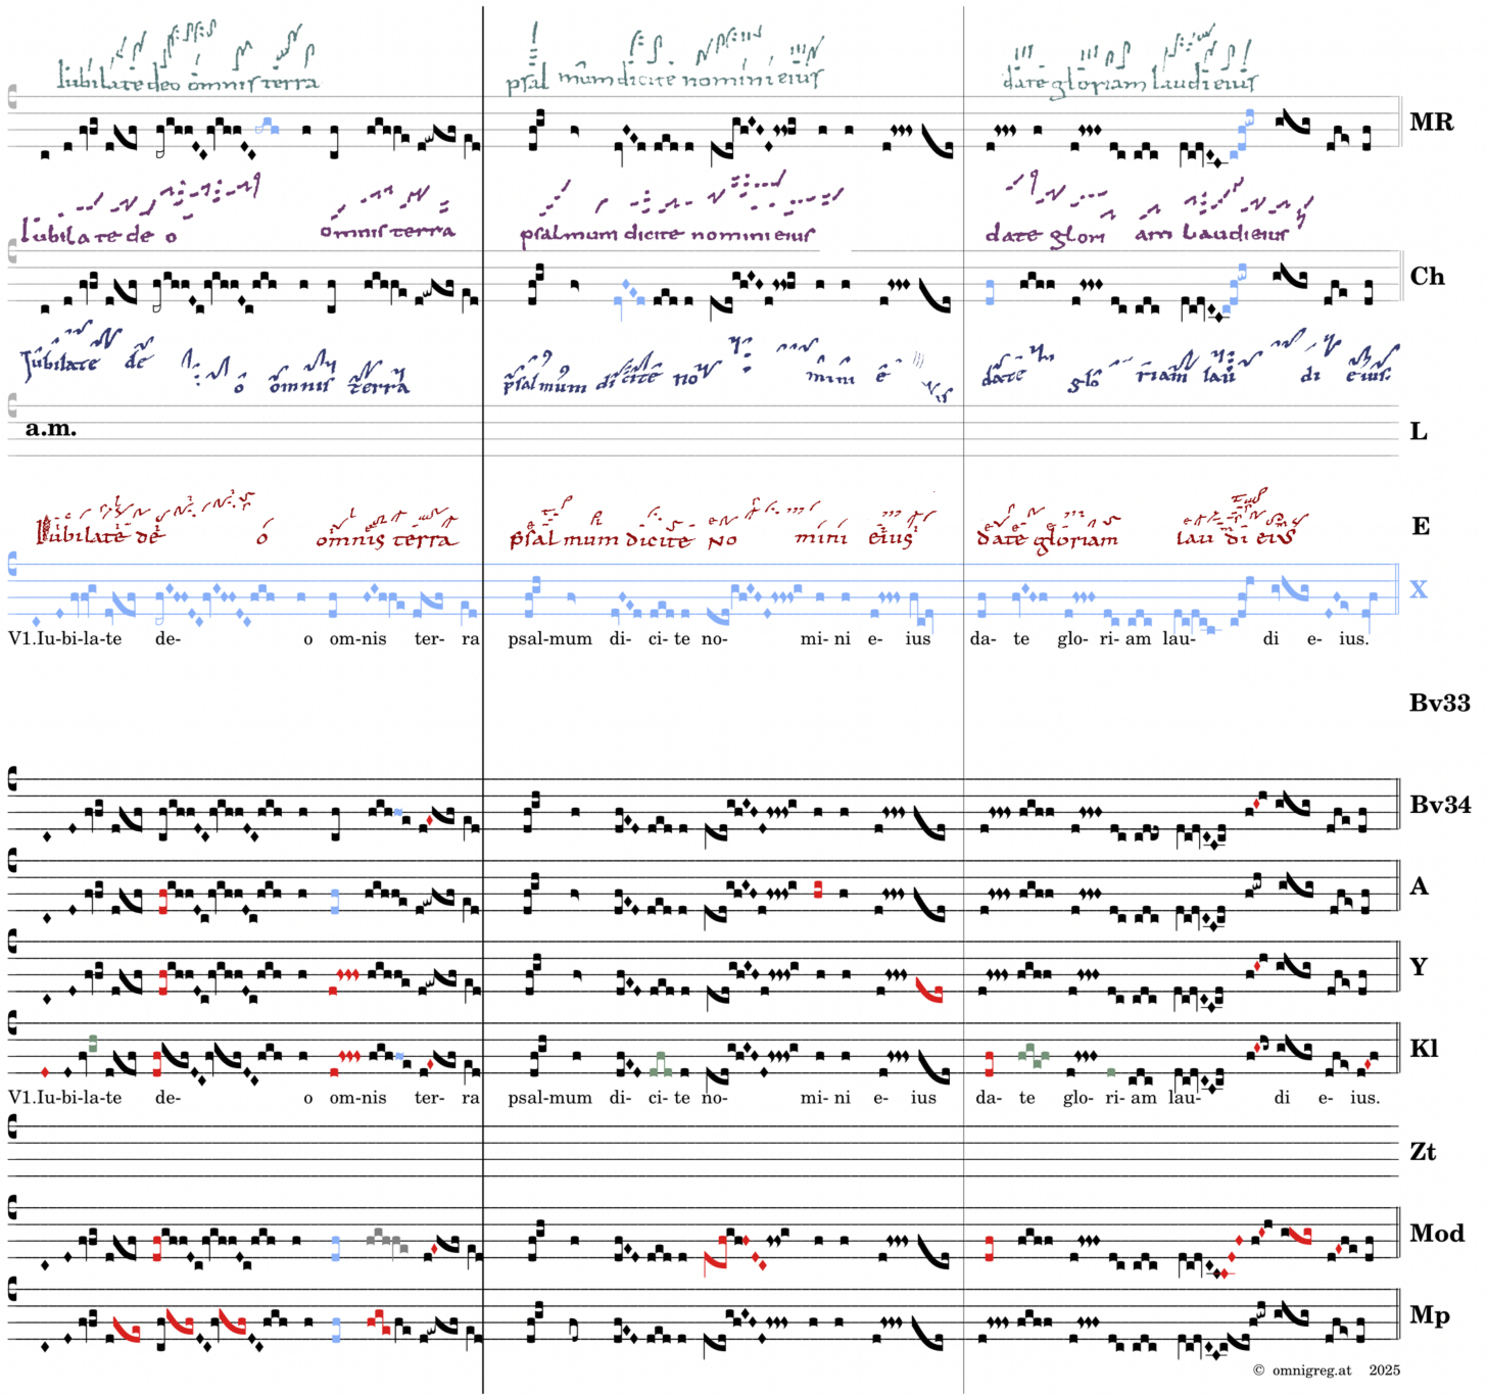 Iubilate deo omnis terra psalmum dicite nomini eius date gloriam laudi eius
MR
Iubilate deo omnis terra psalmum dicite nomini eius date gloriam laudi eius
Ch
Iubilate de o omnis terra psalmum dicite no mini e ius date glo riam lau di eius.
a.m.
L
Iubilate de o omnis terra psalmum dicite No mini eius date gloriam lau di eius
E
X
V1.Iu-bi-la-te de- o om-nis ter- ra psal-mum di- ci- te no- mi- ni e- ius da- te glo- ri- am lau- di e- ius.
Bv33
Bv34
A
Y
Kl
V1.Iu-bi-la-te de- o om-nis ter- ra psal-mum di- ci- te no- mi- ni e- ius da- te glo- ri- am lau- di e- ius.
Zt
Mod
Mp
© omnigreg.at 2025